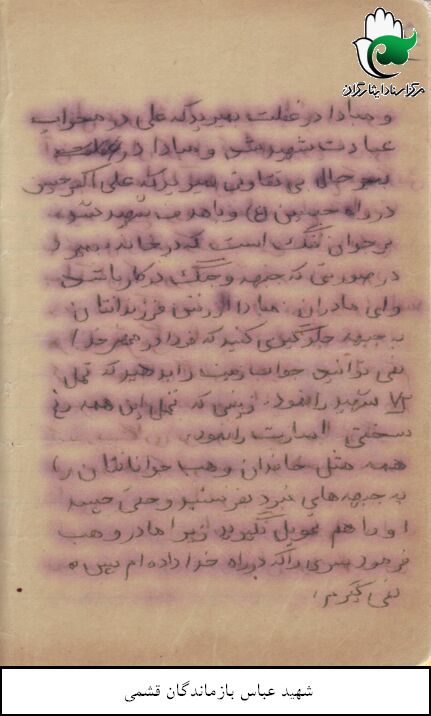 مرکز اسناد ایثارگران
و مبادا در غفلت بمیرید که علی در محراب
عبادت شهید شد و مبادا در غفلت
بی تفاوتی بمیرید که علی اکبر حسین
در راه حسین (ع) و با هدف شهید شد،
بر جوان ننگ است که در خانه بمیرد
در صورتی که جبهه و جنگ در کار باشد
ولی مادران مبادا از رفتن فرزندانتان
به جبهه جلوگیری کنید که فردا در محضر خدا
نمی توانید جواب زینب را بدهید که تحمل
۷۲ شهید را نمود، زینبی که تحمل این همه رنج
سختی اسارت را نمود،
همه مثل خاندان وهب جوانانتان را
به جبهه های نبرد بفرستید و حتی جسد
او را هم تحویل نگیرید زیرا مادر وهب
فرمود سری را که در راه خدا داده ام پس
نمی گیرم،
شهید عباس بازماندگان قشمی